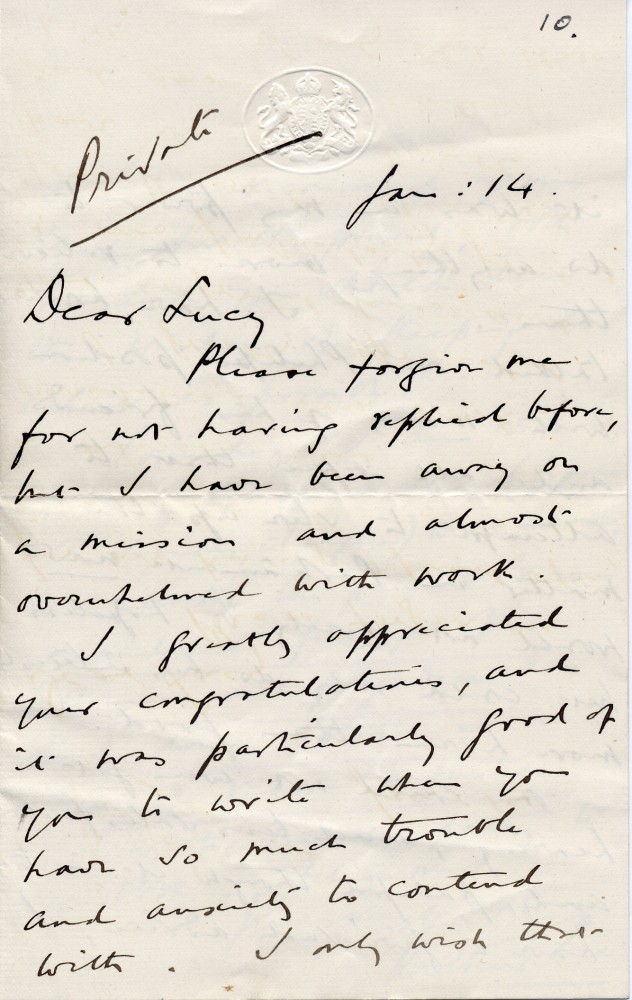 10.
Private
Jan: 14.
Dear Lucy
Please forgive me
for not having replied before,
but I have been away on
a mission and almost
overwhelmed with work.
I greatly appreciated
your congratulations, and
it was particularly good of
you to write when you
have so much trouble
and anxiety to contend
with. I only wish that